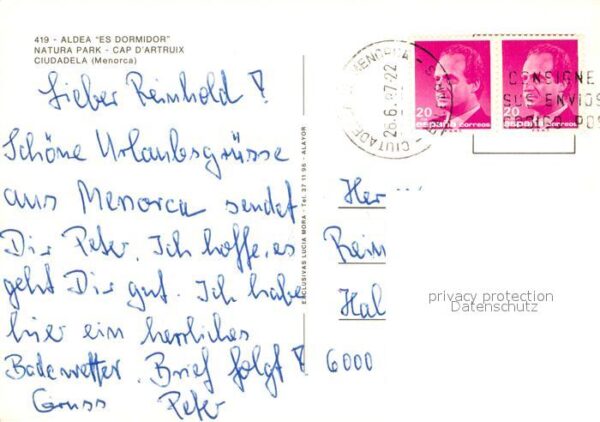 419 - ALDEA "ES DORMIDOR"
NATURA PARK - CAP D'ARTRUIX
CIUDADELA (Menorca)
Lieber Reinhold!
Schöne Urlaubsgrüsse
aus Menorca sendet
Dir Peter. Ich hoffe, es
geht Dir gut. Ich habe
hier ein herrliches
Badewetter. Brief folgt!
Gruss Peter
EXCLUSIVAS LUCIA MORA - Tel. 37 11 96 - ALAYOR
26.6.87-22
20
españa correos
20
españa correos
CONSIGNE
SUS ENVIOS
CODIGO POS
Her
Rein
Hal
6000
privacy protection
Datenschutz